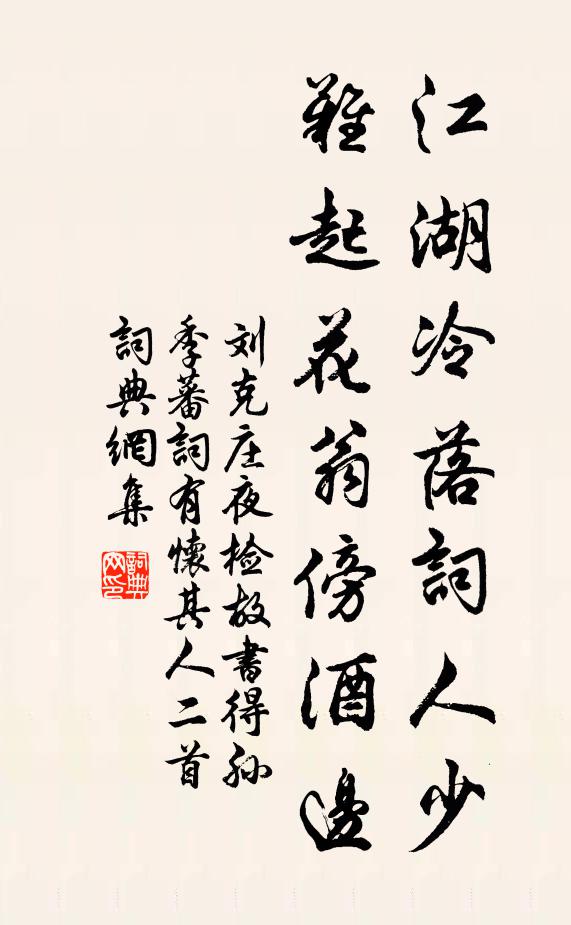 江湖冷落詞人少
難起花翁傍酒邊
刘克庄夜檢故書得孙
季蕃詞有懷其人二首
詞典網集
詞典
网印